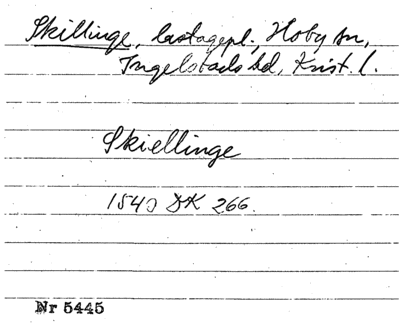 Skillinge, lastagepl., Hoby sn,
Ingelstads hd, Krist. l.
Skiellinge
1540 DK 266.
Nr 5445